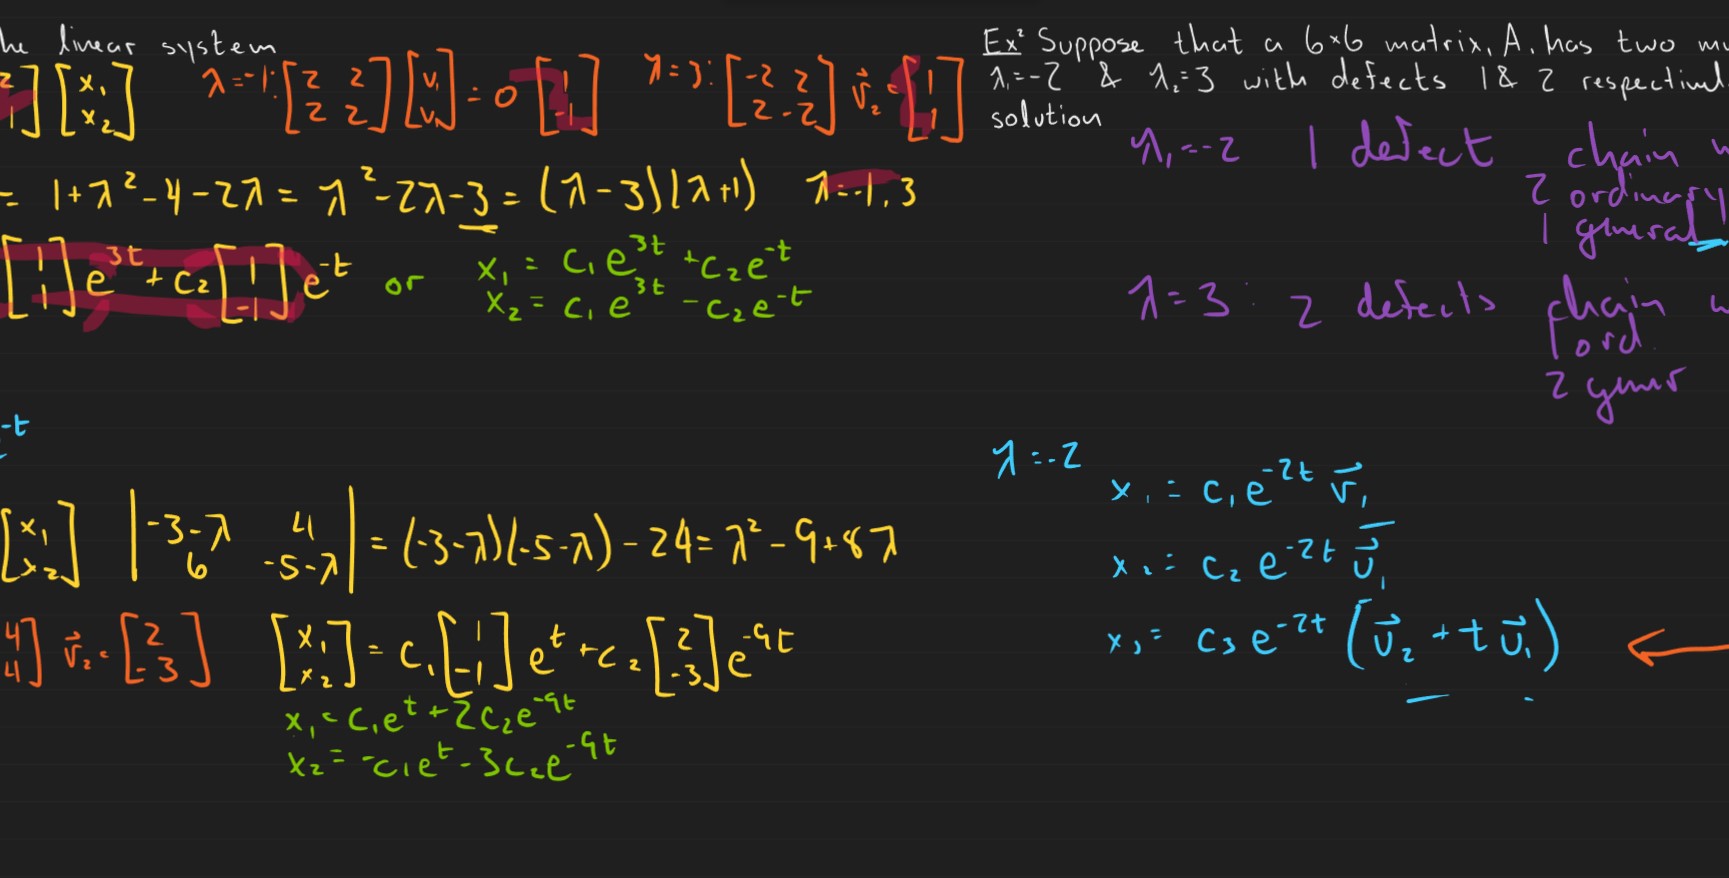 he linear system
2 1] [x₁ x₂]
λ=-1: [2 2 2 2] [v₁ v₂] = 0 [1 -1]
λ=3: [-2 2 2 -2] v⃗₂ = [1 1]
= 1+λ²-4-2λ = λ²-2λ-3 = (λ-3)(λ+1) λ=-1,3
[1 1] e^3t + c₂ [1 -1] e^-t or x₁ = c₁e^3t + c₂e^-t
x₂ = c₁e^3t - c₂e^-t
-t
[x₁ x₂] |-3-λ 4 6 -5-λ| = (-3-λ)(-5-λ) - 24 = λ² - 9 + 8λ
4 4] v⃗₂ = [2 -3] [x₁ x₂] = c₁ [1 -1] e^t + c₂ [2 -3] e^-9t
x₁ = c₁e^t + 2c₂e^-9t
x₂ = -c₁e^t - 3c₂e^-9t
Ex² Suppose that a 6×6 matrix, A, has two mu
λ₁=-2 & λ₂=3 with defects 1 & 2 respectivel
solution
λ₁=-2 1 defect chain w
2 ordinary
1 general
λ=3: 2 defects chain w
1 ord.
2 gener
λ=-2
x₁ = c₁e^-2t v⃗₁
x₂ = c₂ e^-2t u⃗₁
x₃ = c₃ e^-2t (u⃗₂ + t u⃗₁)